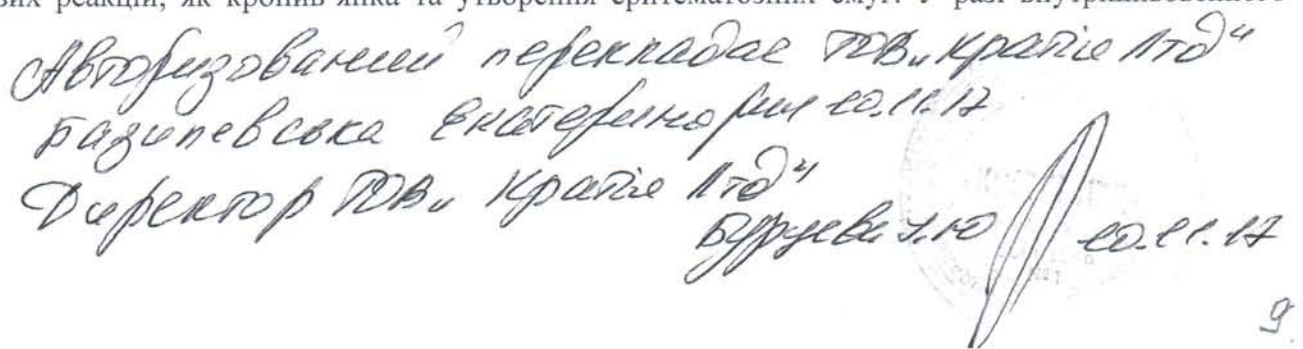 вих реакцій, як кропив'янка та утворення еритематозних смуг. У разі внутрішньовенного
Авторизований перекладач ТОВ „Кратія Лтд"
Базилевська Екатерина 20.11.17
Директор ТОВ „Кратія Лтд"
20.11.17
9.